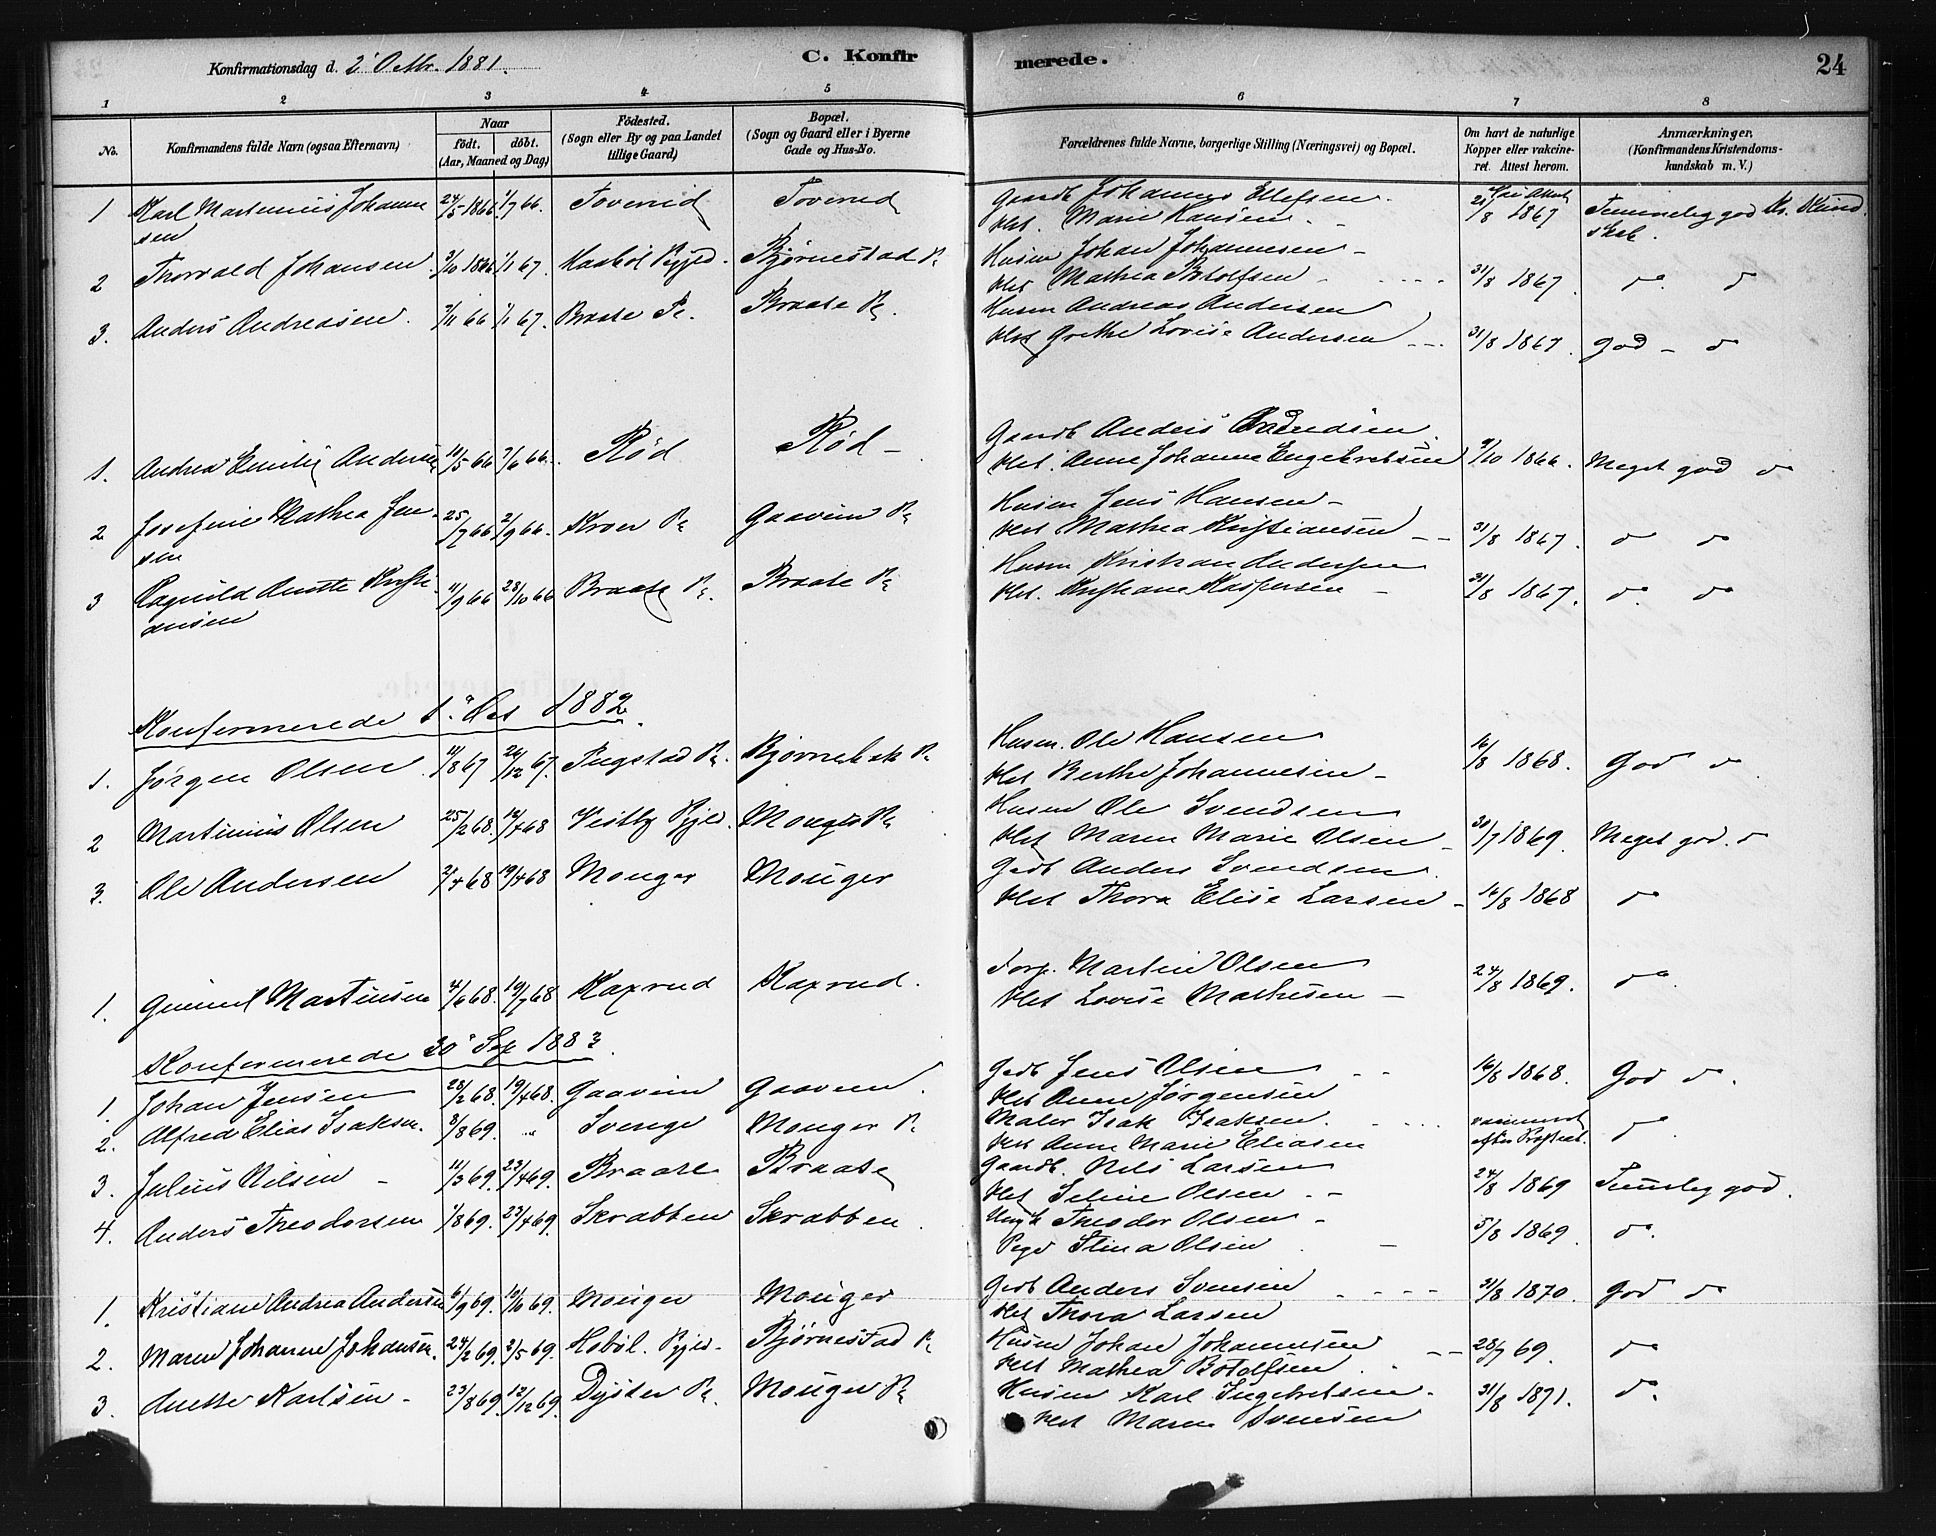 Konfirmationsdag d. 2' Octbr. 1881.
C. Konfir
merede.
24
1 2 3 4 5 6 7 8
No.
Konfirmandens fulde Navn (ogsaa Efternavn)
Naar
født. døbt.
(Aar, Maaned og Dag)
Fødested.
(Sogn eller By og paa Landet
tillige Gaard)
Bopæl.
(Sogn og Gaard eller i Byerne
Gade og Hus-No.
Forældrenes fulde Navne, borgerlige Stilling (Næringsvei) og Bopæl.
Om havt de naturlige
Kopper eller vakcine-
ret. Attest herom.
Anmærkninger,
(Konfirmandens Kristendoms-
kundskab m. V.)
1 Karl Martinius Johanne 24/5 1866 1/7 66. Toverud Toverud Gaardb. Johannes Ellefsen. 1867 Temmelig god Kr. Kund
sen Hst. Marie Hansen. skab.
2 Thorvald Johansen 1866 67. Haabøl Pgjæld. Bjørnestad Pl Husm Johan Johannesen
Hst Mathea Botolfsen 31/8 1867. do do
3. Anders Andreasen. /11 66 /1 67. Braate Pl. Braate Pl. Husm Andreas Andersen
Hst Grethe Lovise Andersen 31/8 1867. god - do
1. Andrea Emilie Andersen /5 66 /6 66. Rød Rød Gaardb Anders
Hst. Anne Johanne Engebretsen /10 1866. Meget god do
2 Josefine Mathea Jen- 25/7 66 2/9 66. Kroer Pl Gaaveim Pl Husm Jens Hansen
sen Hst Mathea Kristiansen 31/8 1867. do do
3 Ragnild Anette Kristi- 11/9 66 28/10 66 Braate Pl. Braate Pl Husm Kristian Andersen
ansen Hst. Kristiane Kaspersen 31/8 1867. do do
Konfirmerede 1. Oct 1882.
1. Jørgen Olsen 11/8 67 26/12 67. Pl. Bjørnebek Pl Husm. Ole Hansen 16/8 1868. God do
Hst Berthe Johannesen
2 Martinius Olsen 25/2 68. 12/4 68 Vestby Pgjæld. Mouger Pl Husm Ole Svendsen
Hst Maren Marie Olsen 30/7 1869. Meget god. do
3. Ole Andersen 2/4 68 19/4 68 Mouger Mouger Gdb Anders Svendsen
Hst Thora Elise Larsen 16/8 1868 do
1. Martinsen 4/6 68. 19/7 68 Kaxrud Kaxrud. Martin Olsen 24/8 1869. do
Hst Lovise Mathisen
Konfirmerede 30' Sep 1883.
1. Johan Jensen 28/2 68. 19/4 68. Gaaveim Gaaveim Gdb Jens Olsen 16/8 1868. God do.
Hst Anne Jørgensen
2. Alfred Elias Isaksen. 3/8 69. " Sverige Mouger Pl Maler Isak Isaksen. do
Hst Anne Marie Eliasen
3. Julius Nilsen 11/3 69. 23/4 69. Braate Braate Gaardb. Nils Larsen 24/8 1869 Temlig god.
Hst Seline Olsen
4. Anders Theodorsen 1/8 69. 23/4 69. Skrabben Skrabben Ungk Theodor Olsen 5/8 1869. do.
Pige Stina Olsen
1. Kristiane Andrea Andersen 6/9 69. 10/10 69. Mouger Mouger Gdb Anders Svensen 31/8 1870. God do
Hst Thora Larsen
2. Maren Johanne Johansen. 24/2 69. 2/5 69. Hobøl. Pgjæld. Bjørnestad Pl Husm Johan Johannesen 28/7 69. do
Hst Mathea Botolfsen
3. Anette Karlsen 23/8 69. 12/12 69. Dyster Pl. Mouger Pl Husm Karl Ingebretsen. 31/8 1871. do
Hst Maren Svensen